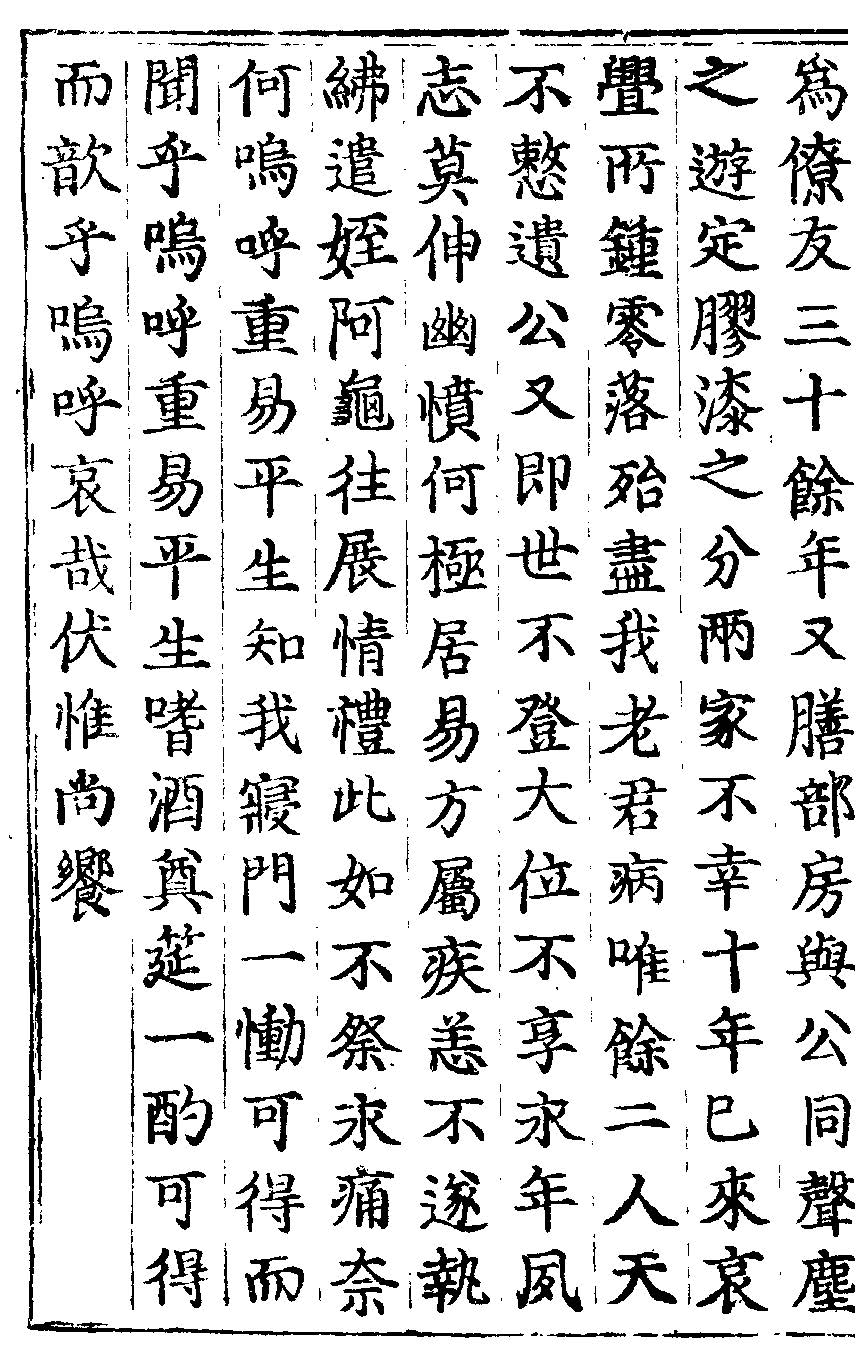 為僚友三十餘年又膳部房與公同聲塵
之遊定膠漆之分兩家不幸十年已來哀
疊所鍾零落殆盡我老君病唯餘二人天
不憗遺公又即世不登大位不享永年夙
志莫伸幽憤何極居易方屬疾恙不遂執
紼遣姪阿龜往展情禮此如不祭永痛奈
何嗚呼重易平生知我寢門一慟可得而
聞乎嗚呼重易平生嗜酒奠筵一酌可得
而歆乎嗚呼哀哉伏惟尚饗